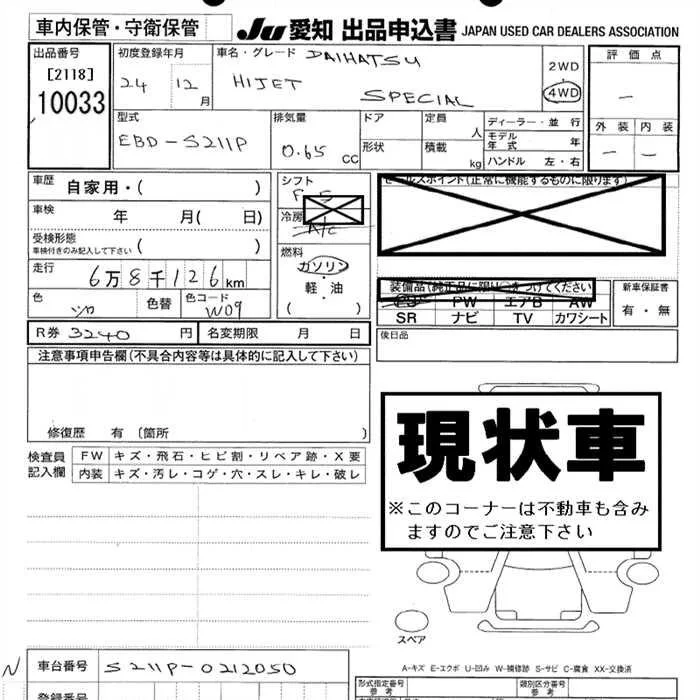 車内保管・守衛保管
JU 愛知 出品申込書 JAPAN USED CAR DEALERS ASSOCIATION
出品番号
[2118]
10033
初度登録年月
24 12月
車名・グレード DAIHATSU
HIJET
SPECIAL
2WD
4WD
評価点
—
外装 内装
— —
型式
EBD-S211P
排気量
0.65 CC
ドア
形状
定員 人
積載 kg
ディーラー・並行
モデル年式 年
ハンドル 左・右
車歴 自家用・( )
車検 年 月( 日)
受検形態
車検付きのみ記入して下さい ( )
走行
6万8千126km
色
シロ
色替
色コード
W09
シフト
F5
冷房
A/C
燃料
ガソリン
・
軽・油
( )
セールスポイント(正常に機能するものに限ります)
装備品(純正品に限り○をつけてください)
PS PW エアB AW
SR ナビ TV カワシート
新車保証書
有・無
R券 3240 円
名変期限 月 日
後日品
注意事項申告欄(不具合内容等は具体的に記入して下さい)
修復歴 有 〔箇所 〕
検査員記入欄
FW キズ・飛石・ヒビ割・リペア跡・X要
内装 キズ・汚レ・コゲ・穴・スレ・キレ・破レ
現状車
※このコーナーは不動車も含み
ますのでご注意下さい
スペア
A-キズ E-エクボ U-凹み W-補修跡 S-サビ C-腐食 XX-交換済
N 車台番号 S211P-0212050
登録番号
形式指定番号
参考
類別区分番号
参考